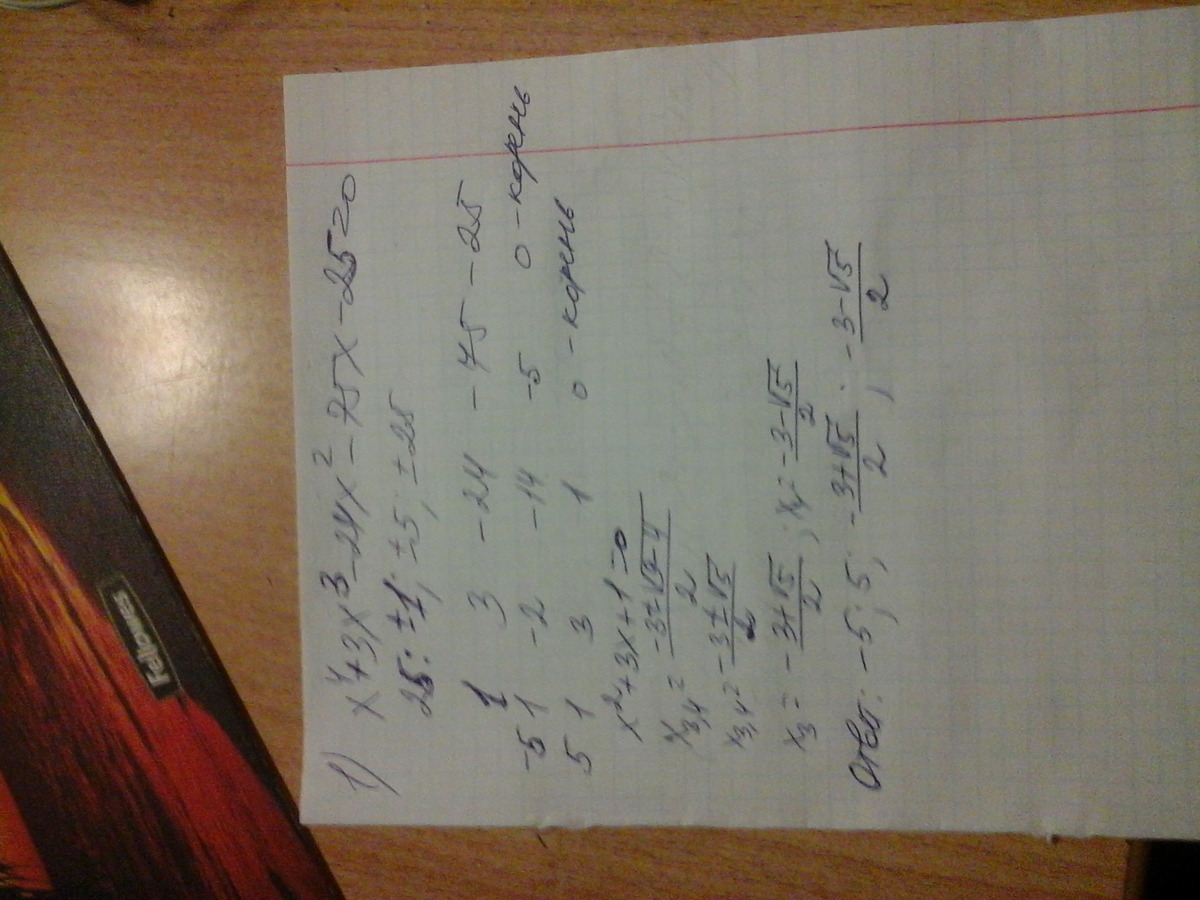 1) x⁴+3x³-24x²-75x-25=0
25: ±1; ±5; ±25
1 3 -24 -75 -25
-5 1 -2 -14 -5 0 - корень
5 1 3 1 0 - корень
x²+3x+1=0
x₃,₄ = (-3±√9-4)/2
x₃,₄ = (-3±√5)/2
x₃ = (-3+√5)/2 ; x₄ = (-3-√5)/2
Ответ: -5; 5; (-3+√5)/2 ; (-3-√5)/2
Fellowes